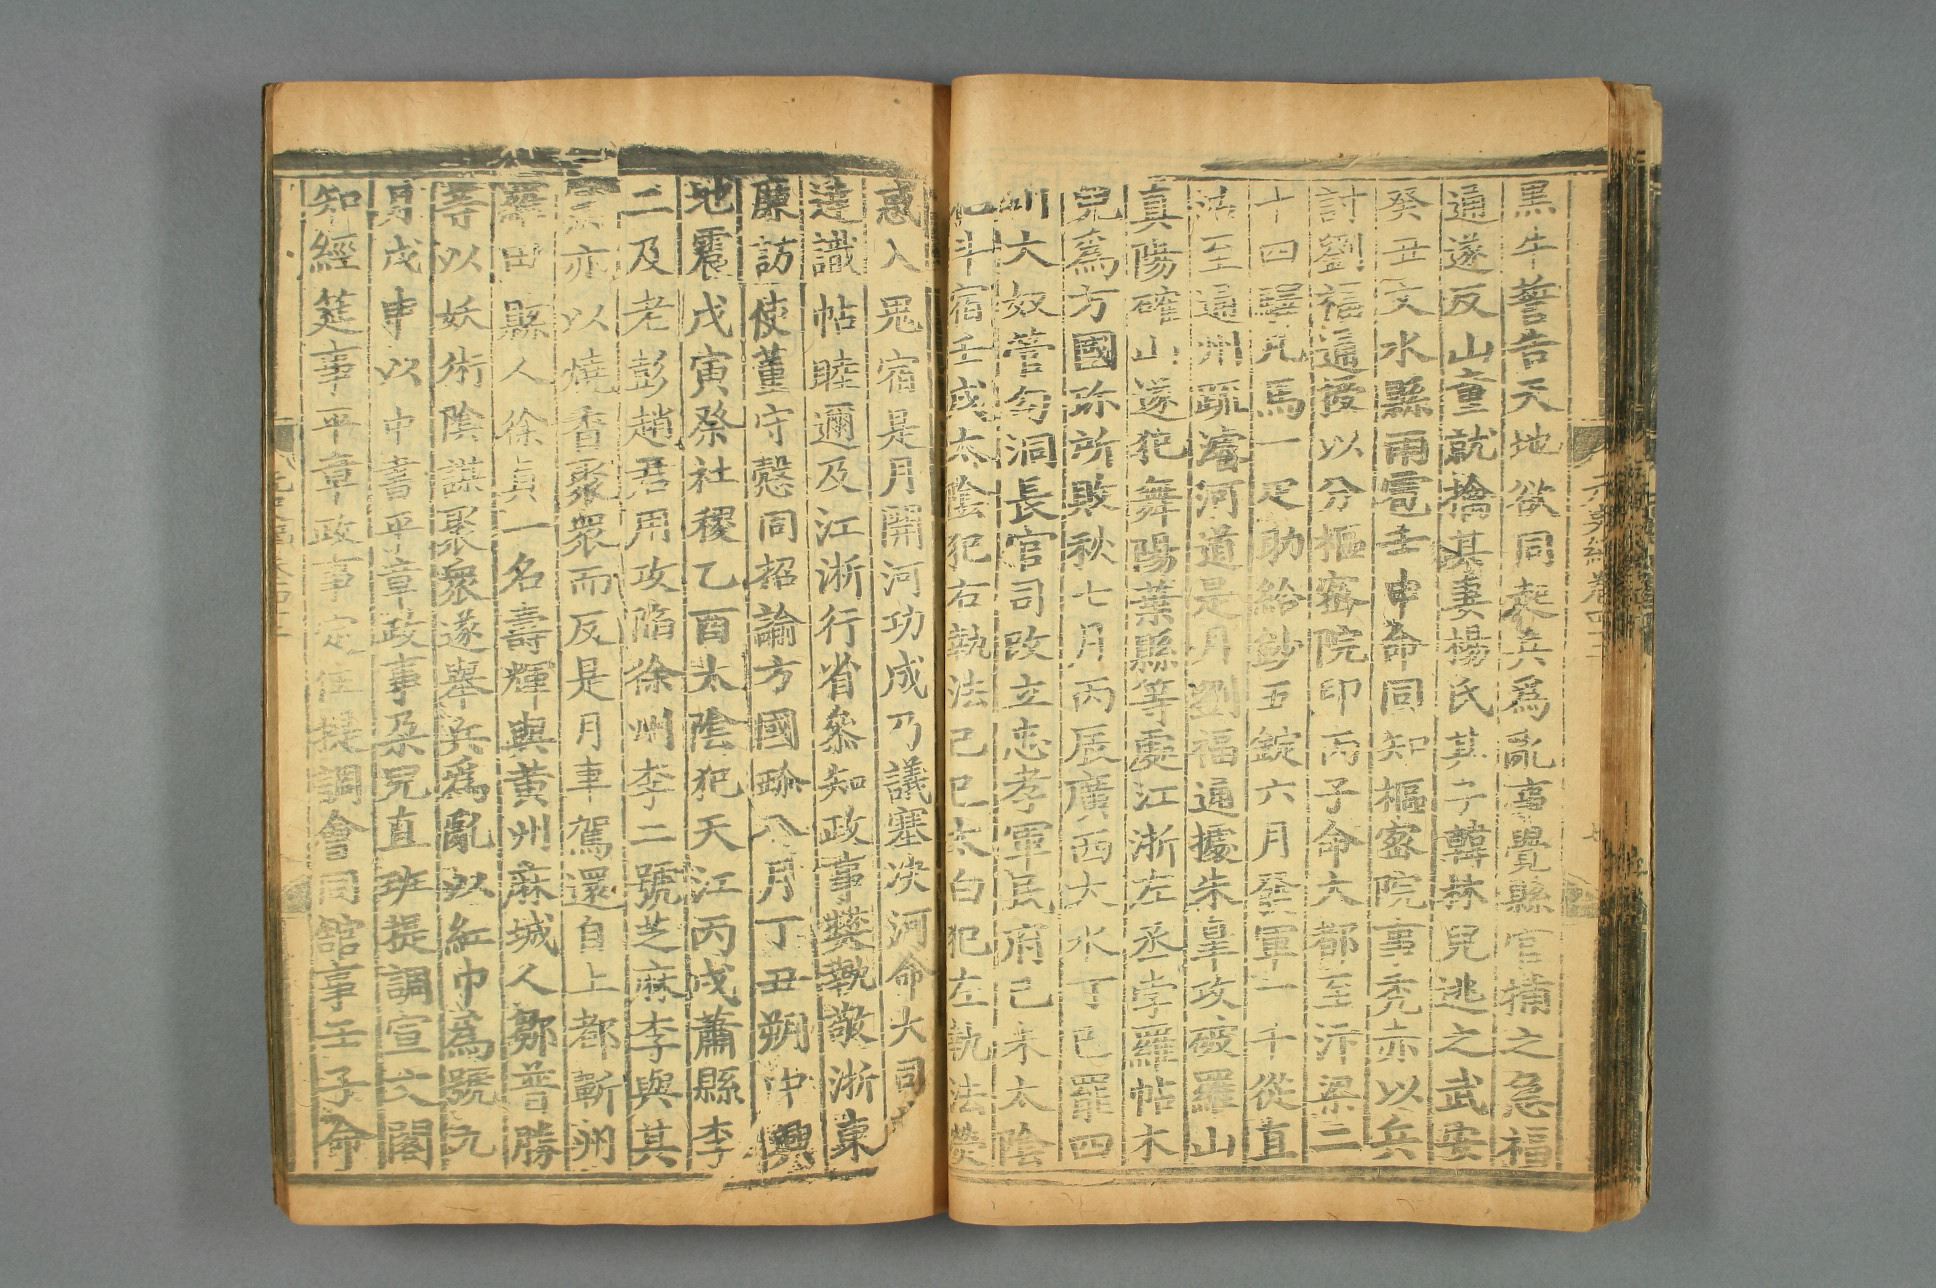 黒牛誓告天地欲同起兵爲亂事覺縣官捕之急福
通遂反山童就擒其妻楊氏其子韓林兒逃之武安
癸丑文水縣雨雹壬申命同知樞密院事禿赤以兵
討劉福通授以分樞密院印丙子命大都至汴梁二
十四驛凡馬一疋助給鈔五錠六月發軍一千從直
沽至通州疏濬河道是月劉福通據朱皐攻破羅山
真陽確山遂犯舞陽葉縣等處江浙左丞孛羅帖木
兒爲方國珎所敗秋七月丙辰廣西大水丁巳罷四
川大奴管勾洞長官司改立忠孝軍民府己未太陰
犯斗宿壬戌太陰犯右執法己巳太白犯左執法熒
惑入鬼宿是月開河功成乃議塞决河命大司
達識帖睦邇及江浙行省叅知政事樊執敬浙東
廉訪使董守慤同招諭方國珎八月丁丑朔中興
地震戊寅祭社稷乙酉太陰犯天江丙戌蕭縣李
二及老彭趙君用攻陷徐州李二號芝麻李與其
亦以燒香聚衆而反是月車駕還自上都蘄州
羅田縣人徐真一名壽輝與黄州麻城人鄒普勝
等以妖術陰謀聚衆遂舉兵爲亂以紅巾爲號九
月戊申以中書平章政事朶兒直班提調宣文閣
知經筵事平章政事定住提調會同館事壬子命